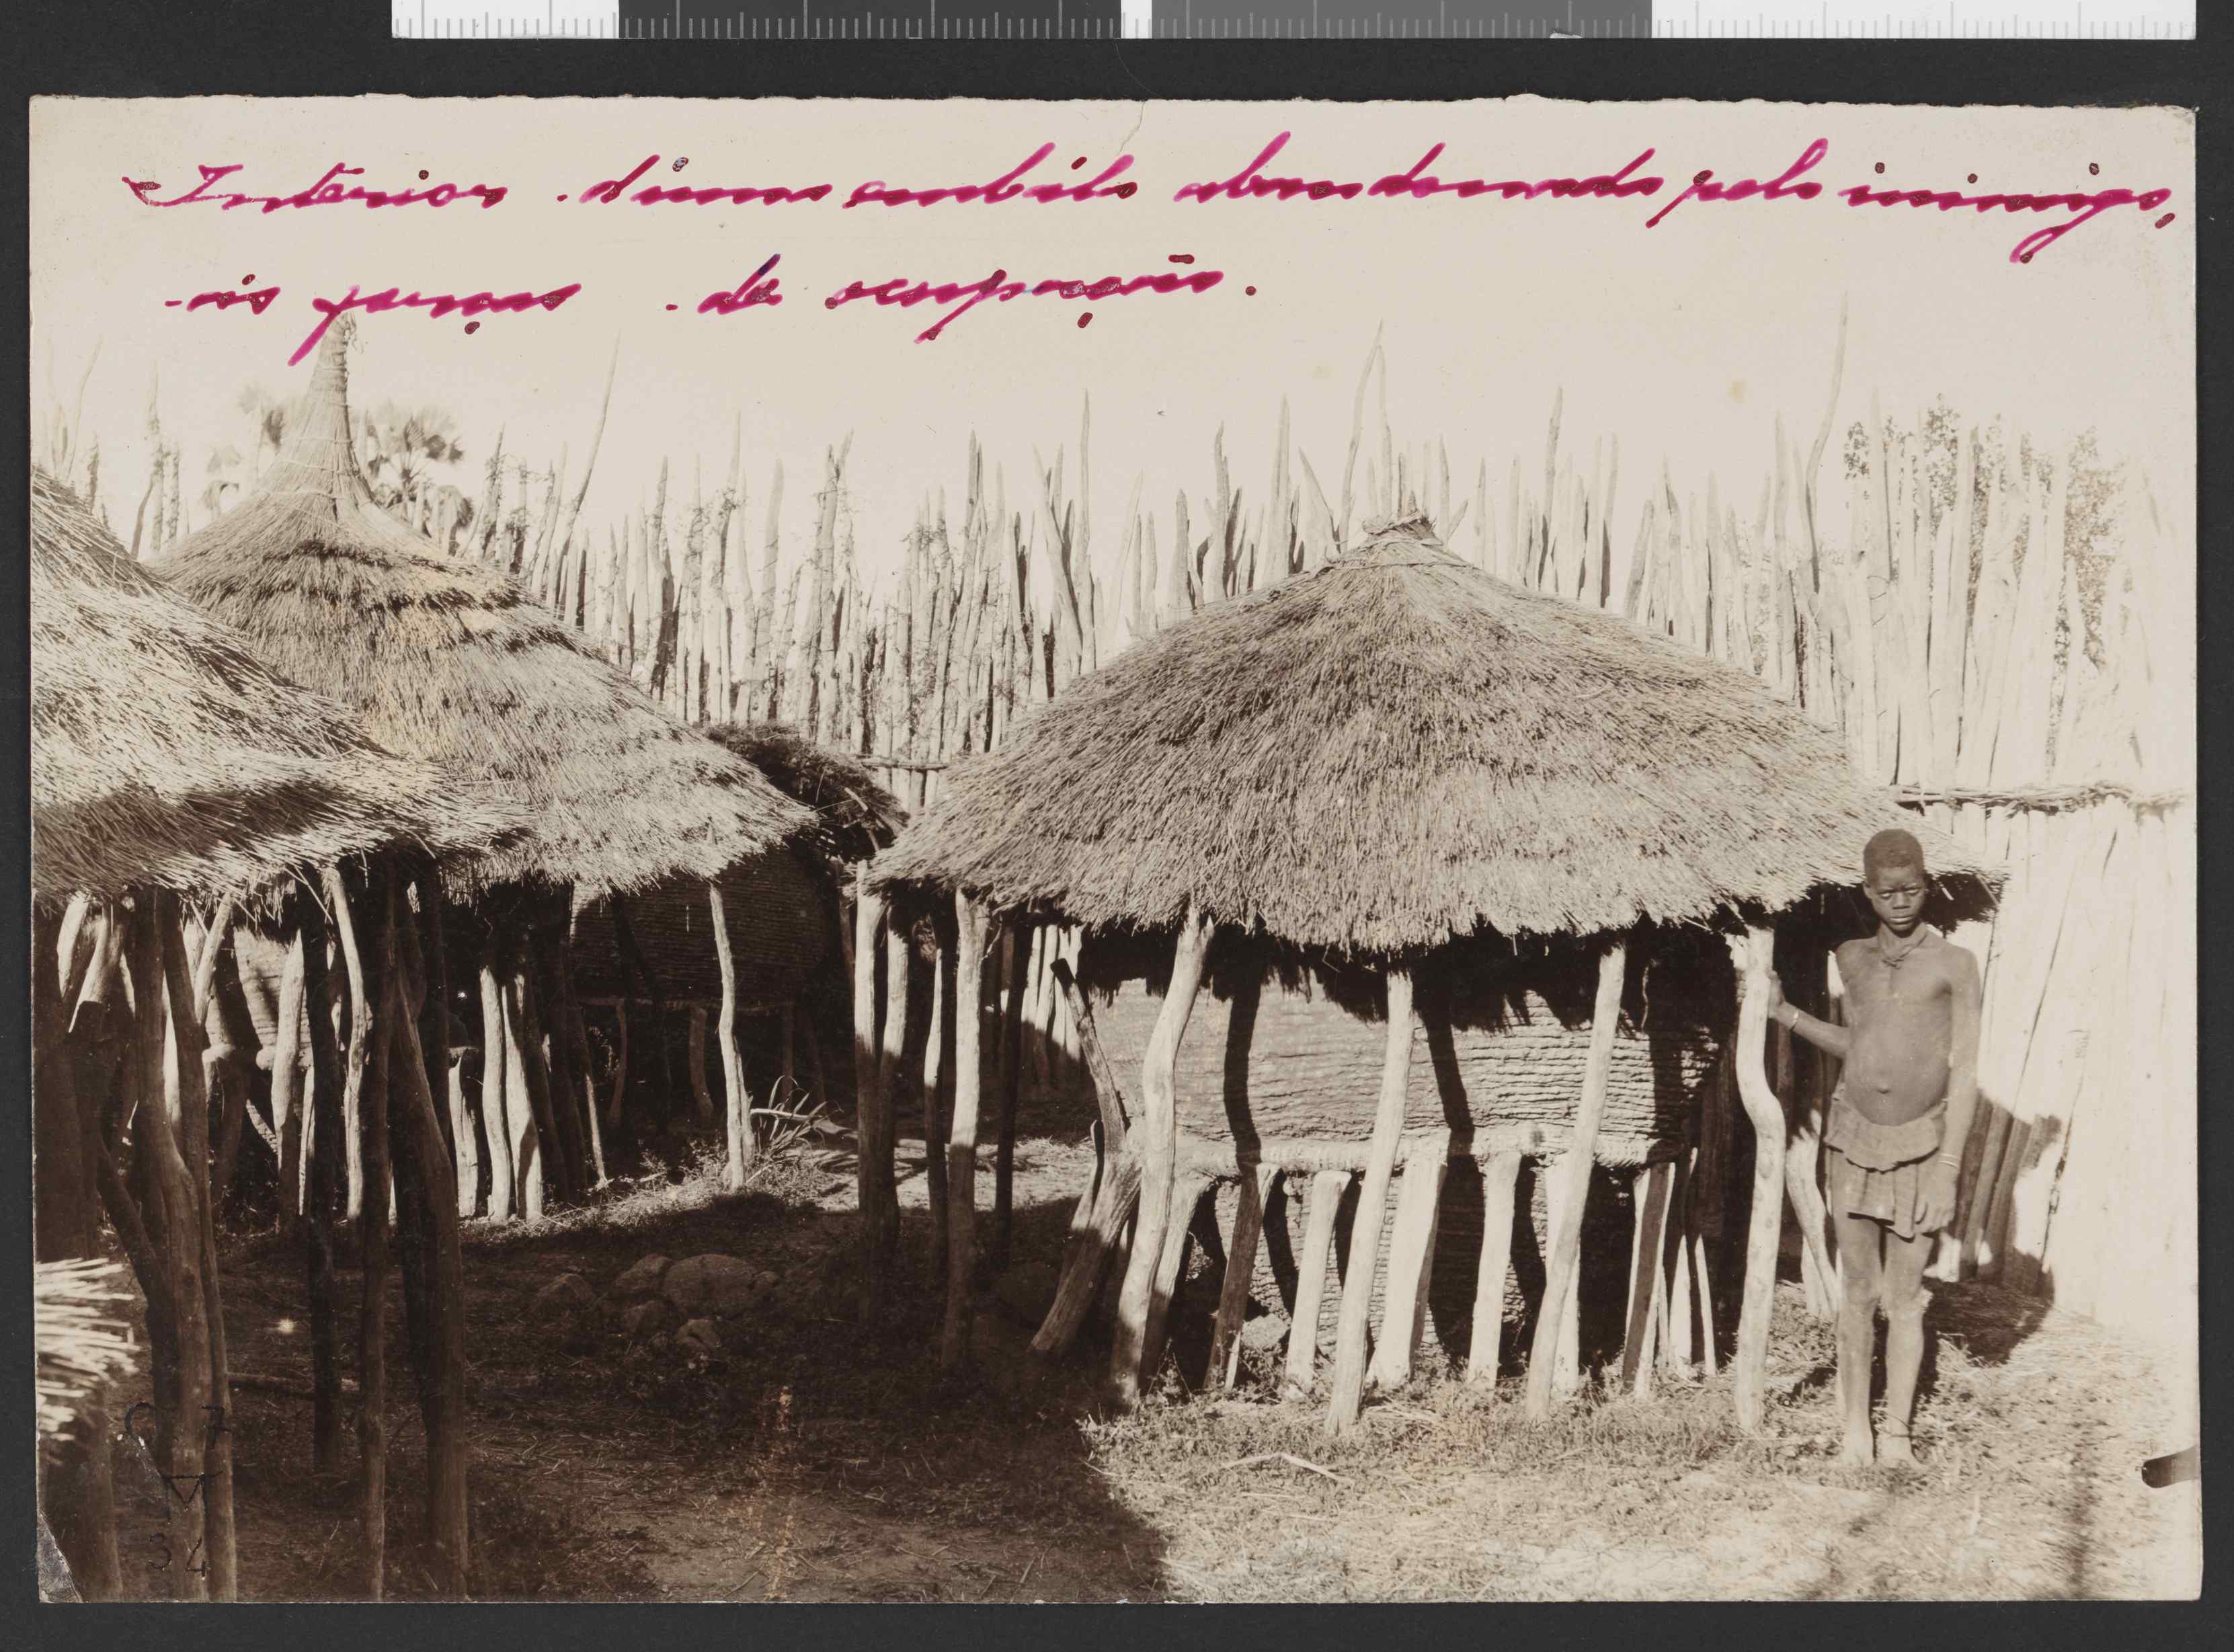 Interior duma embála abandonada pelo inimigo,
ás forças de ocupação.
7
M
34